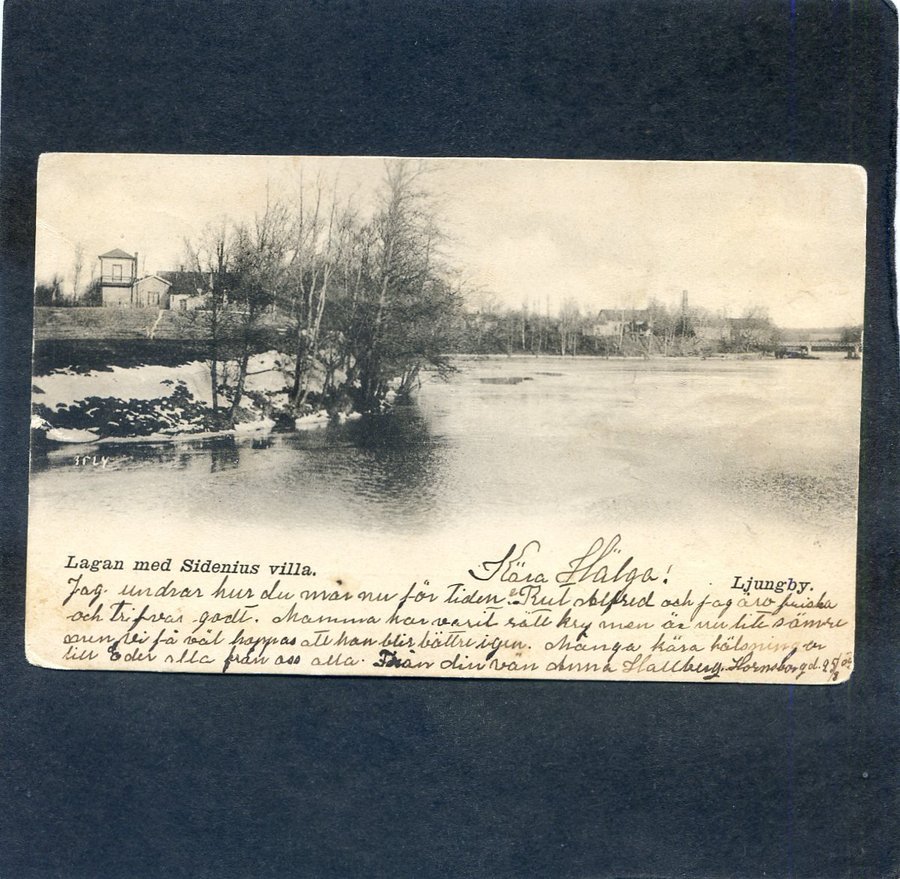 3524
Lagan med Sidenius villa.
Ljungby.
Kära Hälga!
Jag undrar hur du mår nu för tiden. Rut Alfred och jag äro friska
och trifvas godt. Mamma har varit rätt kry men är nu lite sämre
men vi få väl hoppas att hon blir bättre igen. Många kära hälsningar
till Eder alla från oss alla. Från din vän Anna Hallberg. Hornsborg d.